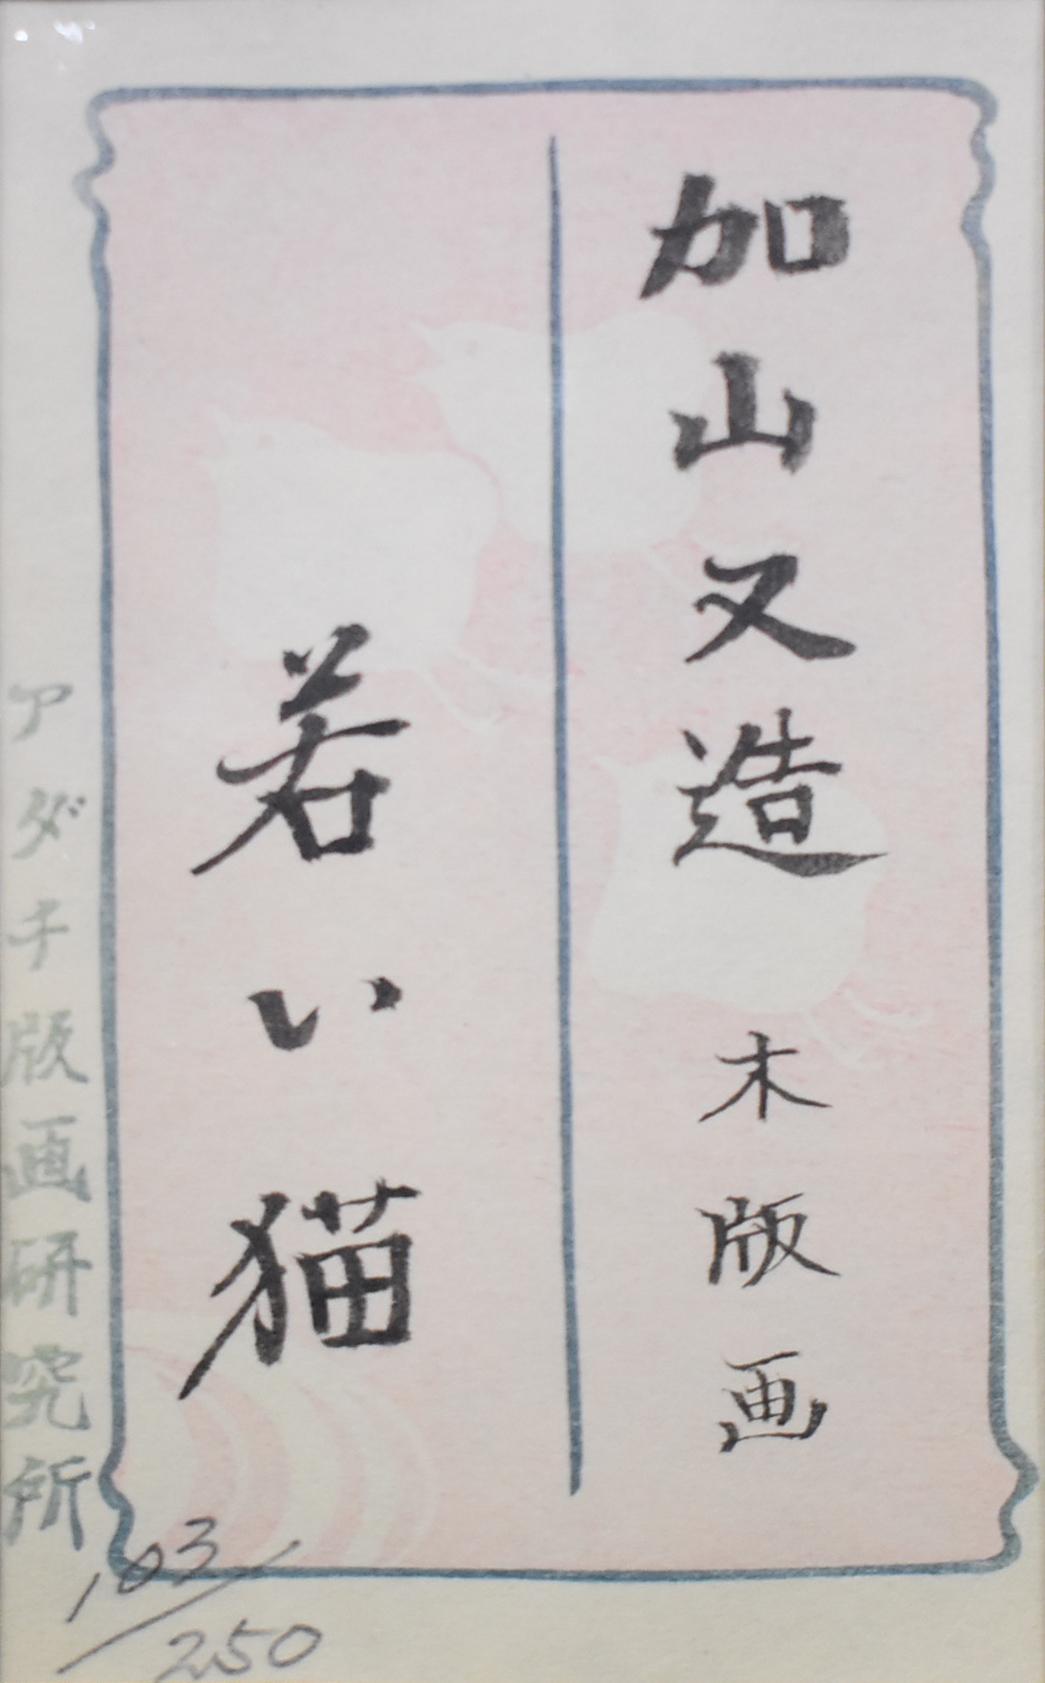 加山又造 木版画
若い猫
アダチ版画研究所
103/250